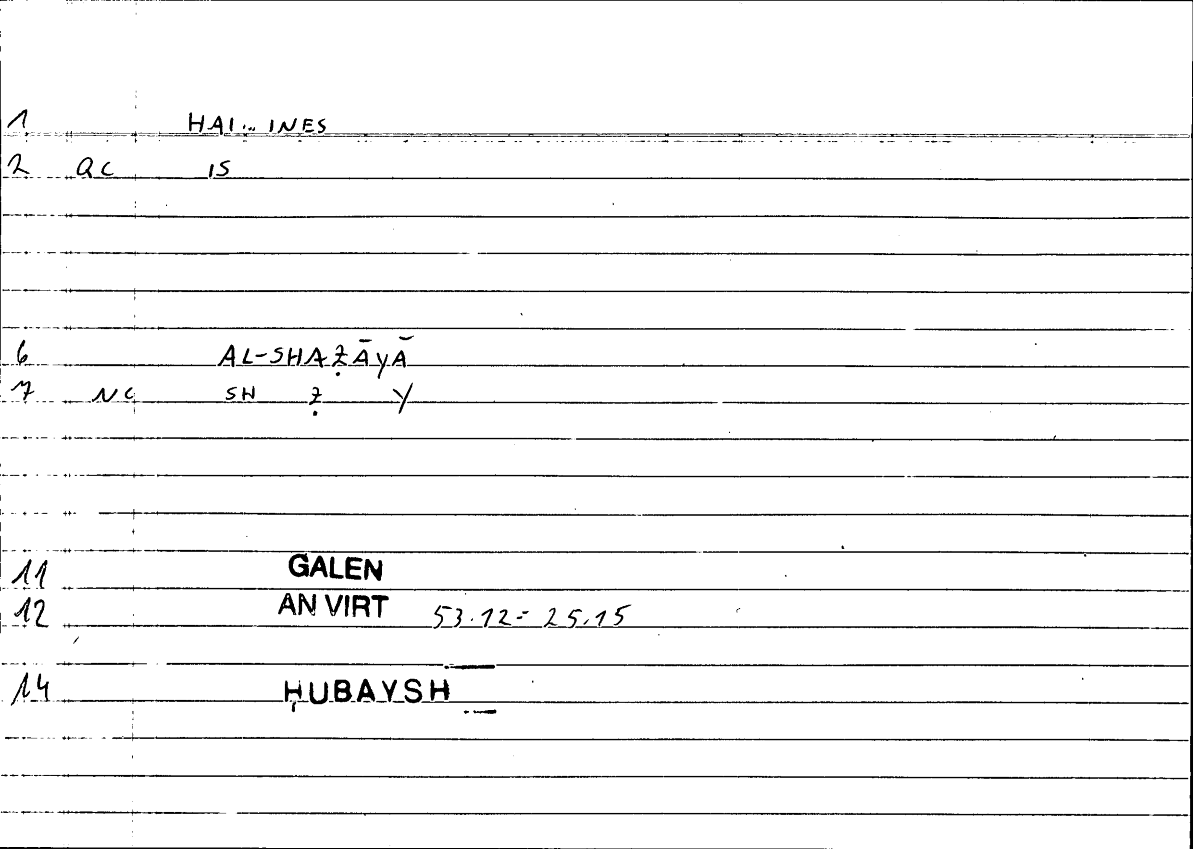 1 HAI... INES
2 QC IS
6 AL-SHAẒĀYĀ
7 NC SH Ẓ Y
11 GALEN
12 AN VIRT 53.12 = 25.15
14 ḤUBAYSH